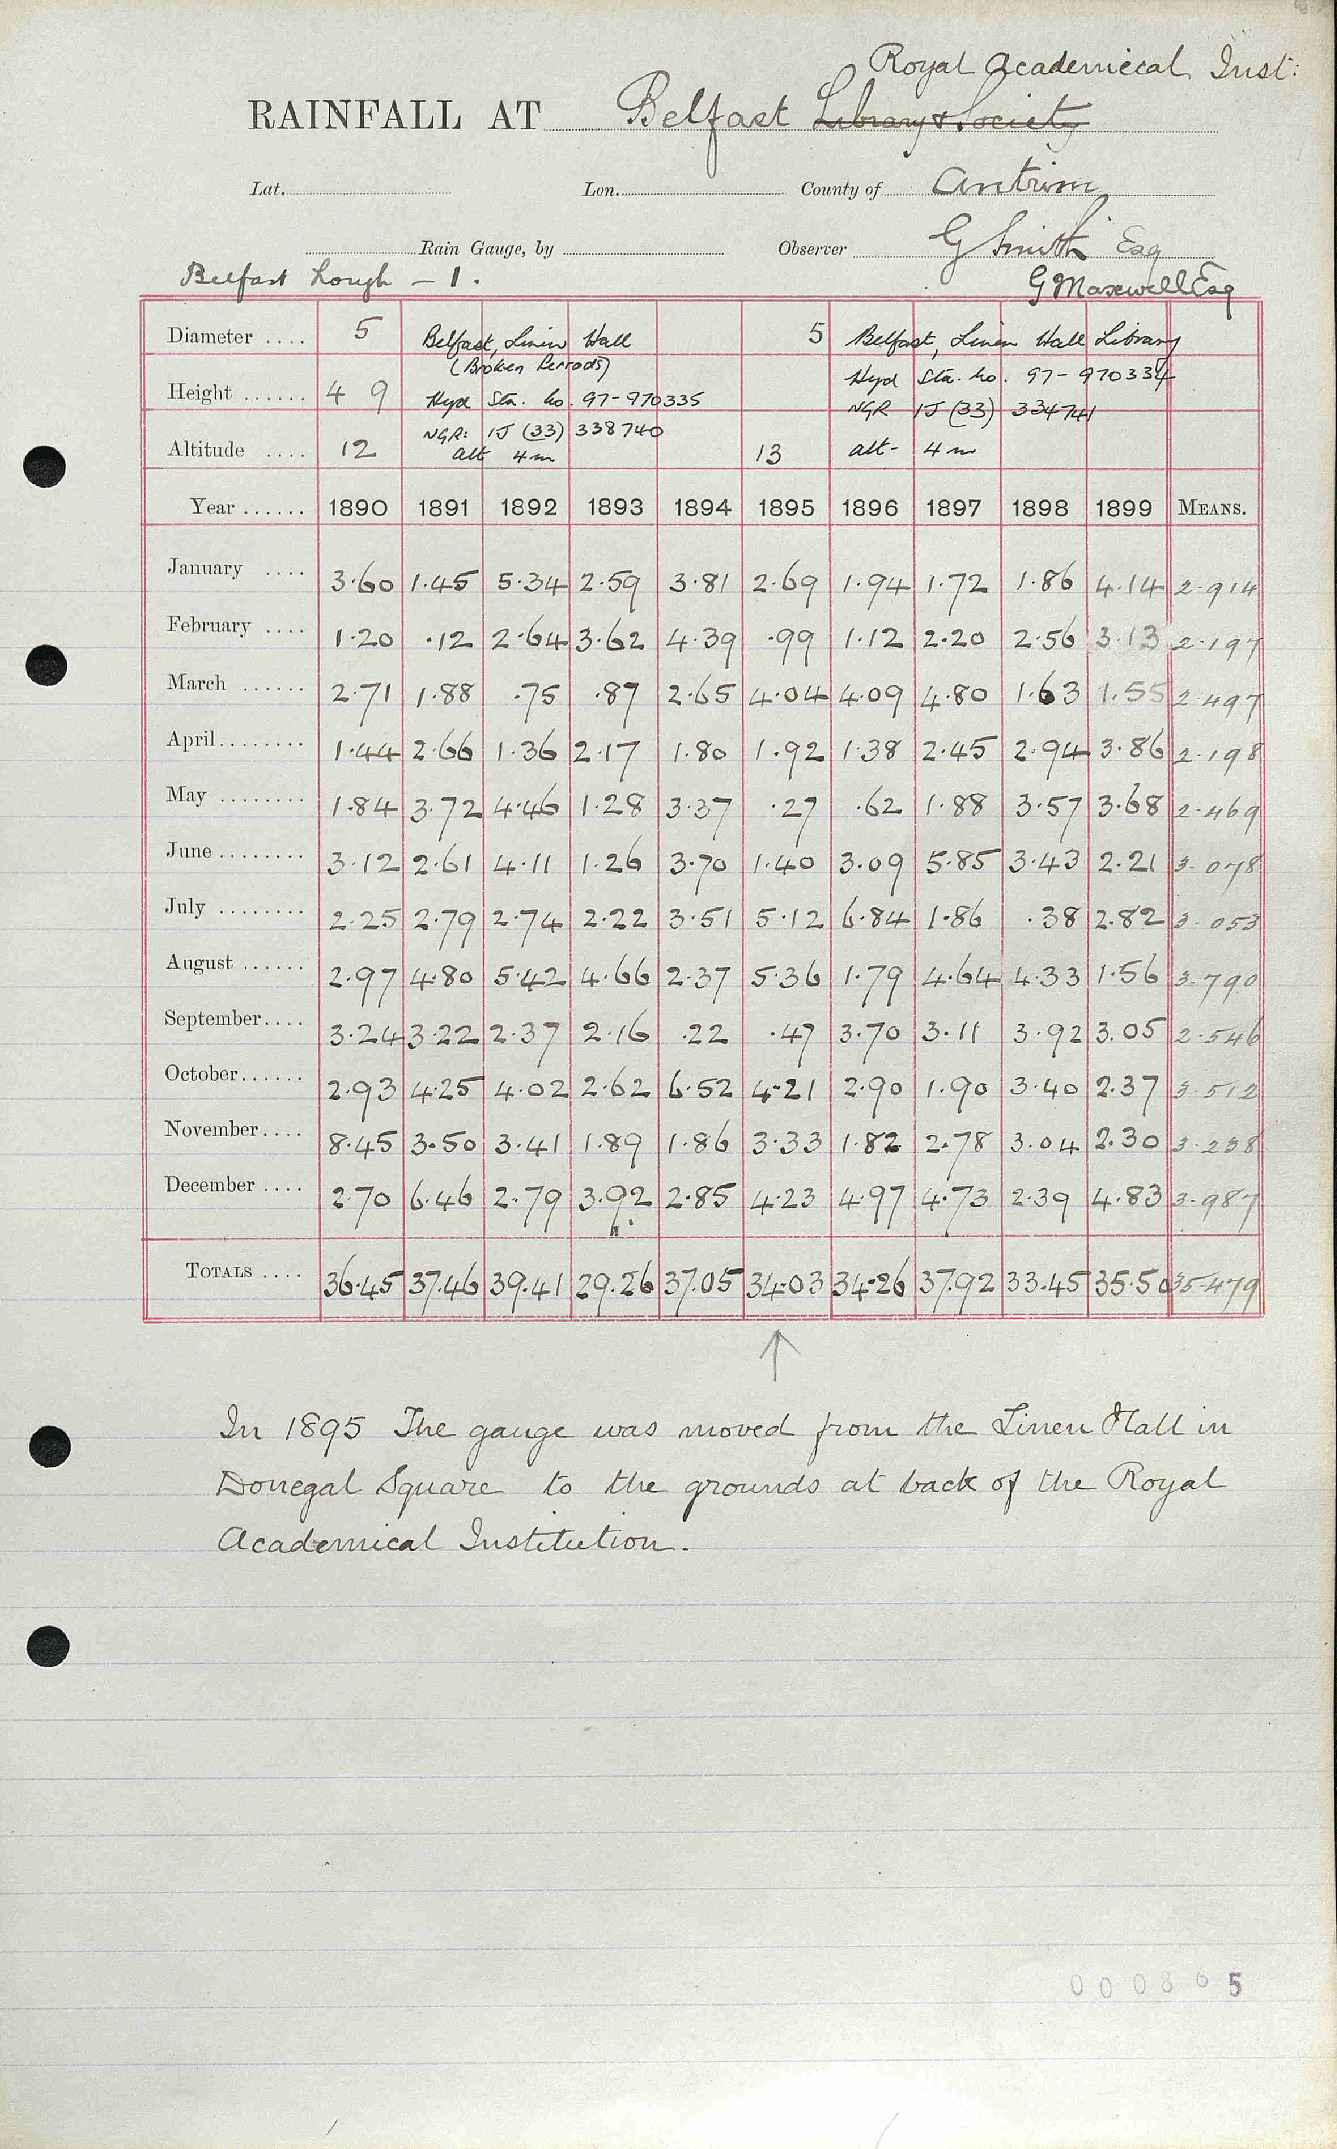 Royal Academical Inst:
RAINFALL AT Belfast Library & Society
Lat. Lon. County of Antrim
Rain Gauge, by Observer G Smith Esq
Belfast Lough - 1. G Maxwell Esq
Diameter .... 5 Belfast, Linen Hall 5 Belfast, Linen Hall Library
(Broken Periods)
Height ...... 4 9 Hyd Sta. No. 97-970335 Hyd Sta. No. 97-970334
NGR: IJ (33) 338740 NGR IJ (33) 334741
Altitude .... 12 alt 4m 13 alt- 4m
Year ...... 1890 1891 1892 1893 1894 1895 1896 1897 1898 1899 MEANS.
January .... 3.60 1.45 5.34 2.59 3.81 2.69 1.94 1.72 1.86 4.14 2.914
February .... 1.20 .12 2.64 3.62 4.39 .99 1.12 2.20 2.56 3.13 2.197
March ...... 2.71 1.88 .75 .87 2.65 4.04 4.09 4.80 1.63 1.55 2.497
April........ 1.44 2.66 1.36 2.17 1.80 1.92 1.38 2.45 2.94 3.86 2.198
May ........ 1.84 3.72 4.46 1.28 3.37 .27 .62 1.88 3.57 3.68 2.469
June ........ 3.12 2.61 4.11 1.26 3.70 1.40 3.09 5.85 3.43 2.21 3.078
July ........ 2.25 2.79 2.74 2.22 3.51 5.12 6.84 1.86 .38 2.82 3.053
August ...... 2.97 4.80 5.42 4.66 2.37 5.36 1.79 4.64 4.33 1.56 3.790
September.... 3.24 3.22 2.37 2.16 .22 .47 3.70 3.11 3.92 3.05 2.546
October...... 2.93 4.25 4.02 2.62 6.52 4.21 2.90 1.90 3.40 2.37 3.512
November.... 8.45 3.50 3.41 1.89 1.86 3.33 1.82 2.78 3.04 2.30 3.238
December .... 2.70 6.46 2.79 3.92 2.85 4.23 4.97 4.73 2.39 4.83 3.987
TOTALS .... 36.45 37.46 39.41 29.26 37.05 34.03 34.26 37.92 33.45 35.50 35.479
In 1895 The gauge was moved from the Linen Hall in
Donegal Square to the grounds at back of the Royal
Academical Institution.
000365